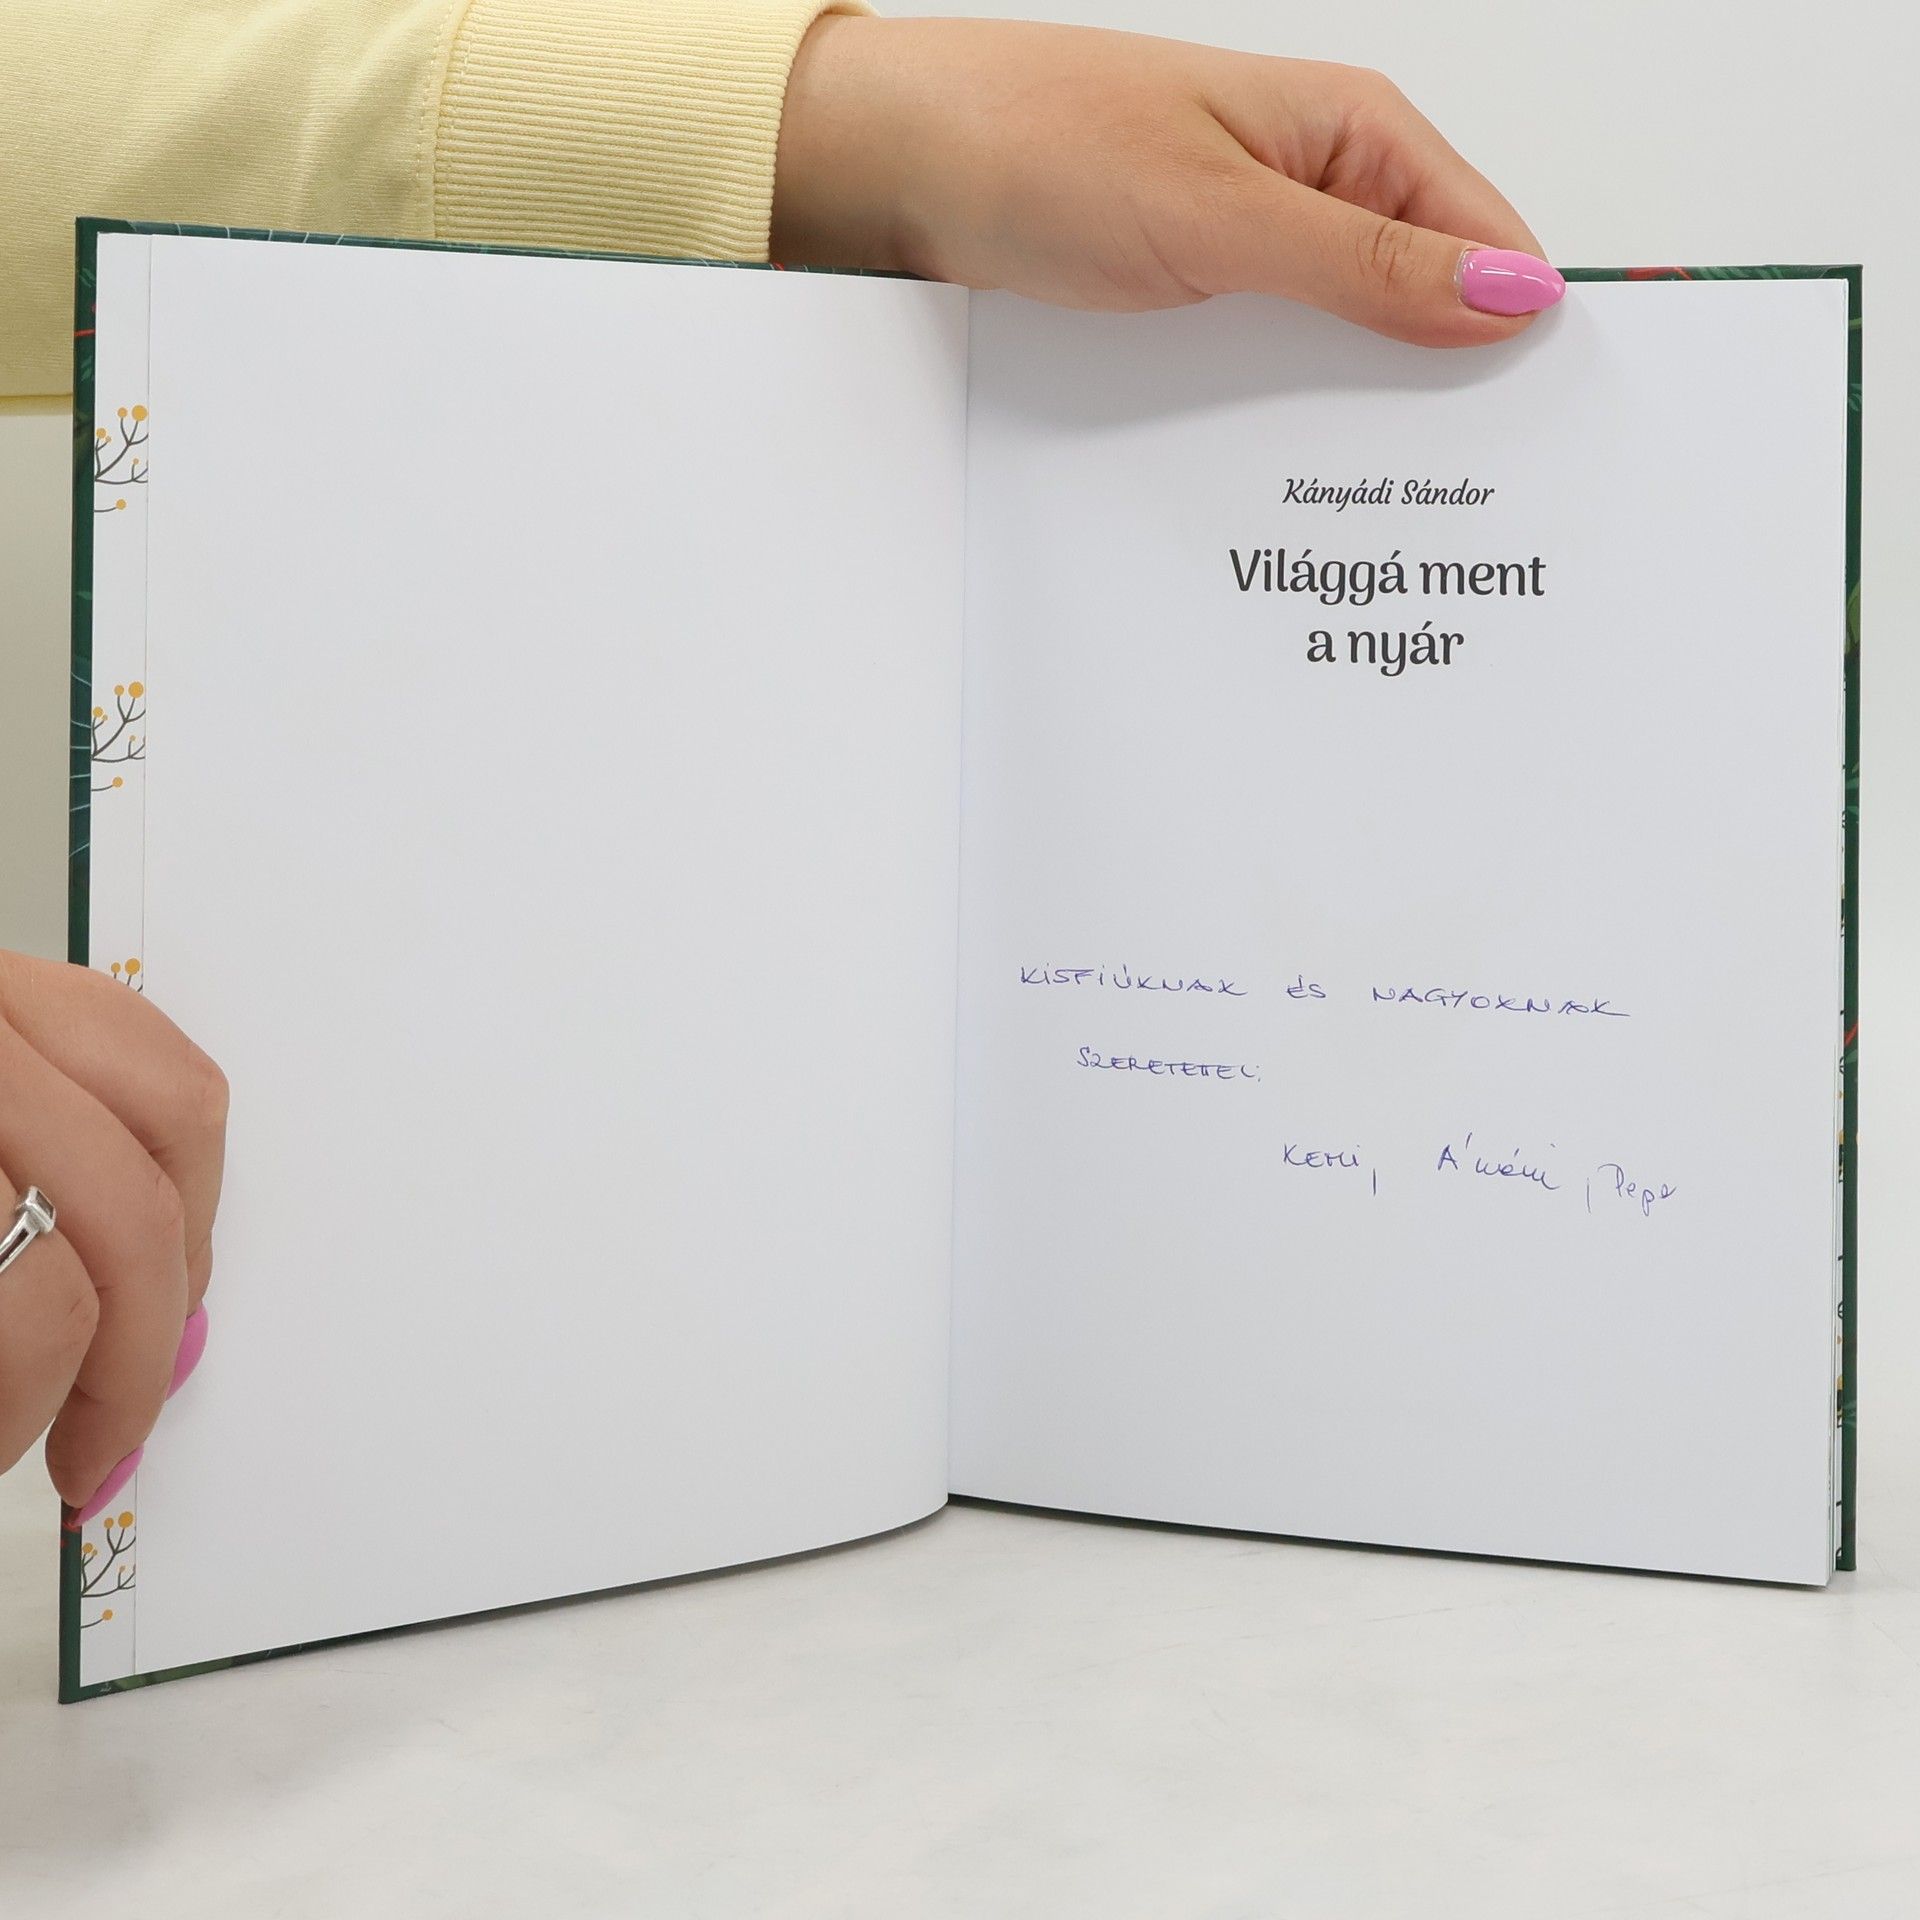 Kányádi Sándor
Világgá ment
a nyár
KISFIÚKNAK ÉS NAGYOKNAK
SZERETETTEL:
Pepe